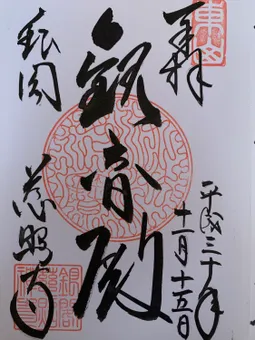 奉拝
平成三十年
十一月十五日
観音殿
銀閣
慈照寺